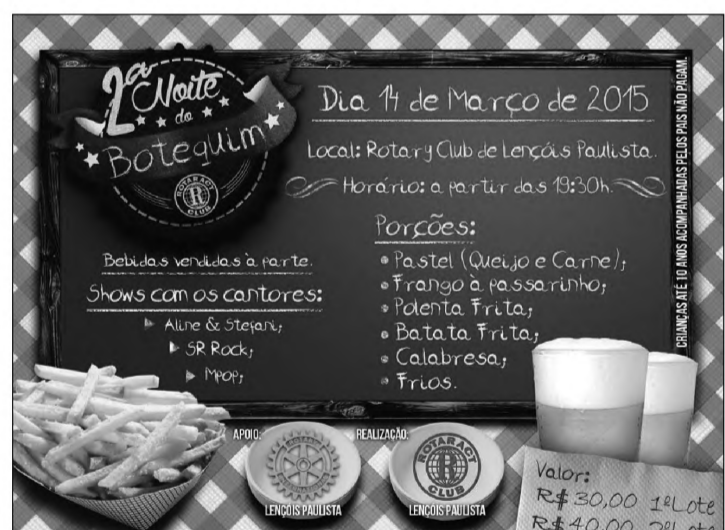 2ª Noite
do
Botequim
ROTARACT
CLUB
Dia 14 de Março de 2015
Local: Rotary Club de Lençóis Paulista.
Horário: a partir das 19:30h.
Bebidas vendidas à parte.
Shows com os cantores:
Aline & Stefani;
SR Rock;
Mpop;
Porções:
Pastel (Queijo e Carne);
Frango à passarinho;
Polenta Frita;
Batata Frita;
Calabresa;
Frios.
CRIANÇAS ATÉ 10 ANOS ACOMPANHADAS PELOS PAIS NÃO PAGAM.
APOIO:
LENÇOIS PAULISTA
REALIZAÇÃO:
ROTARACT
CLUB
LENÇOIS PAULISTA
Valor:
R$ 30,00 1º Lote
R$ 40,00 2º Lote